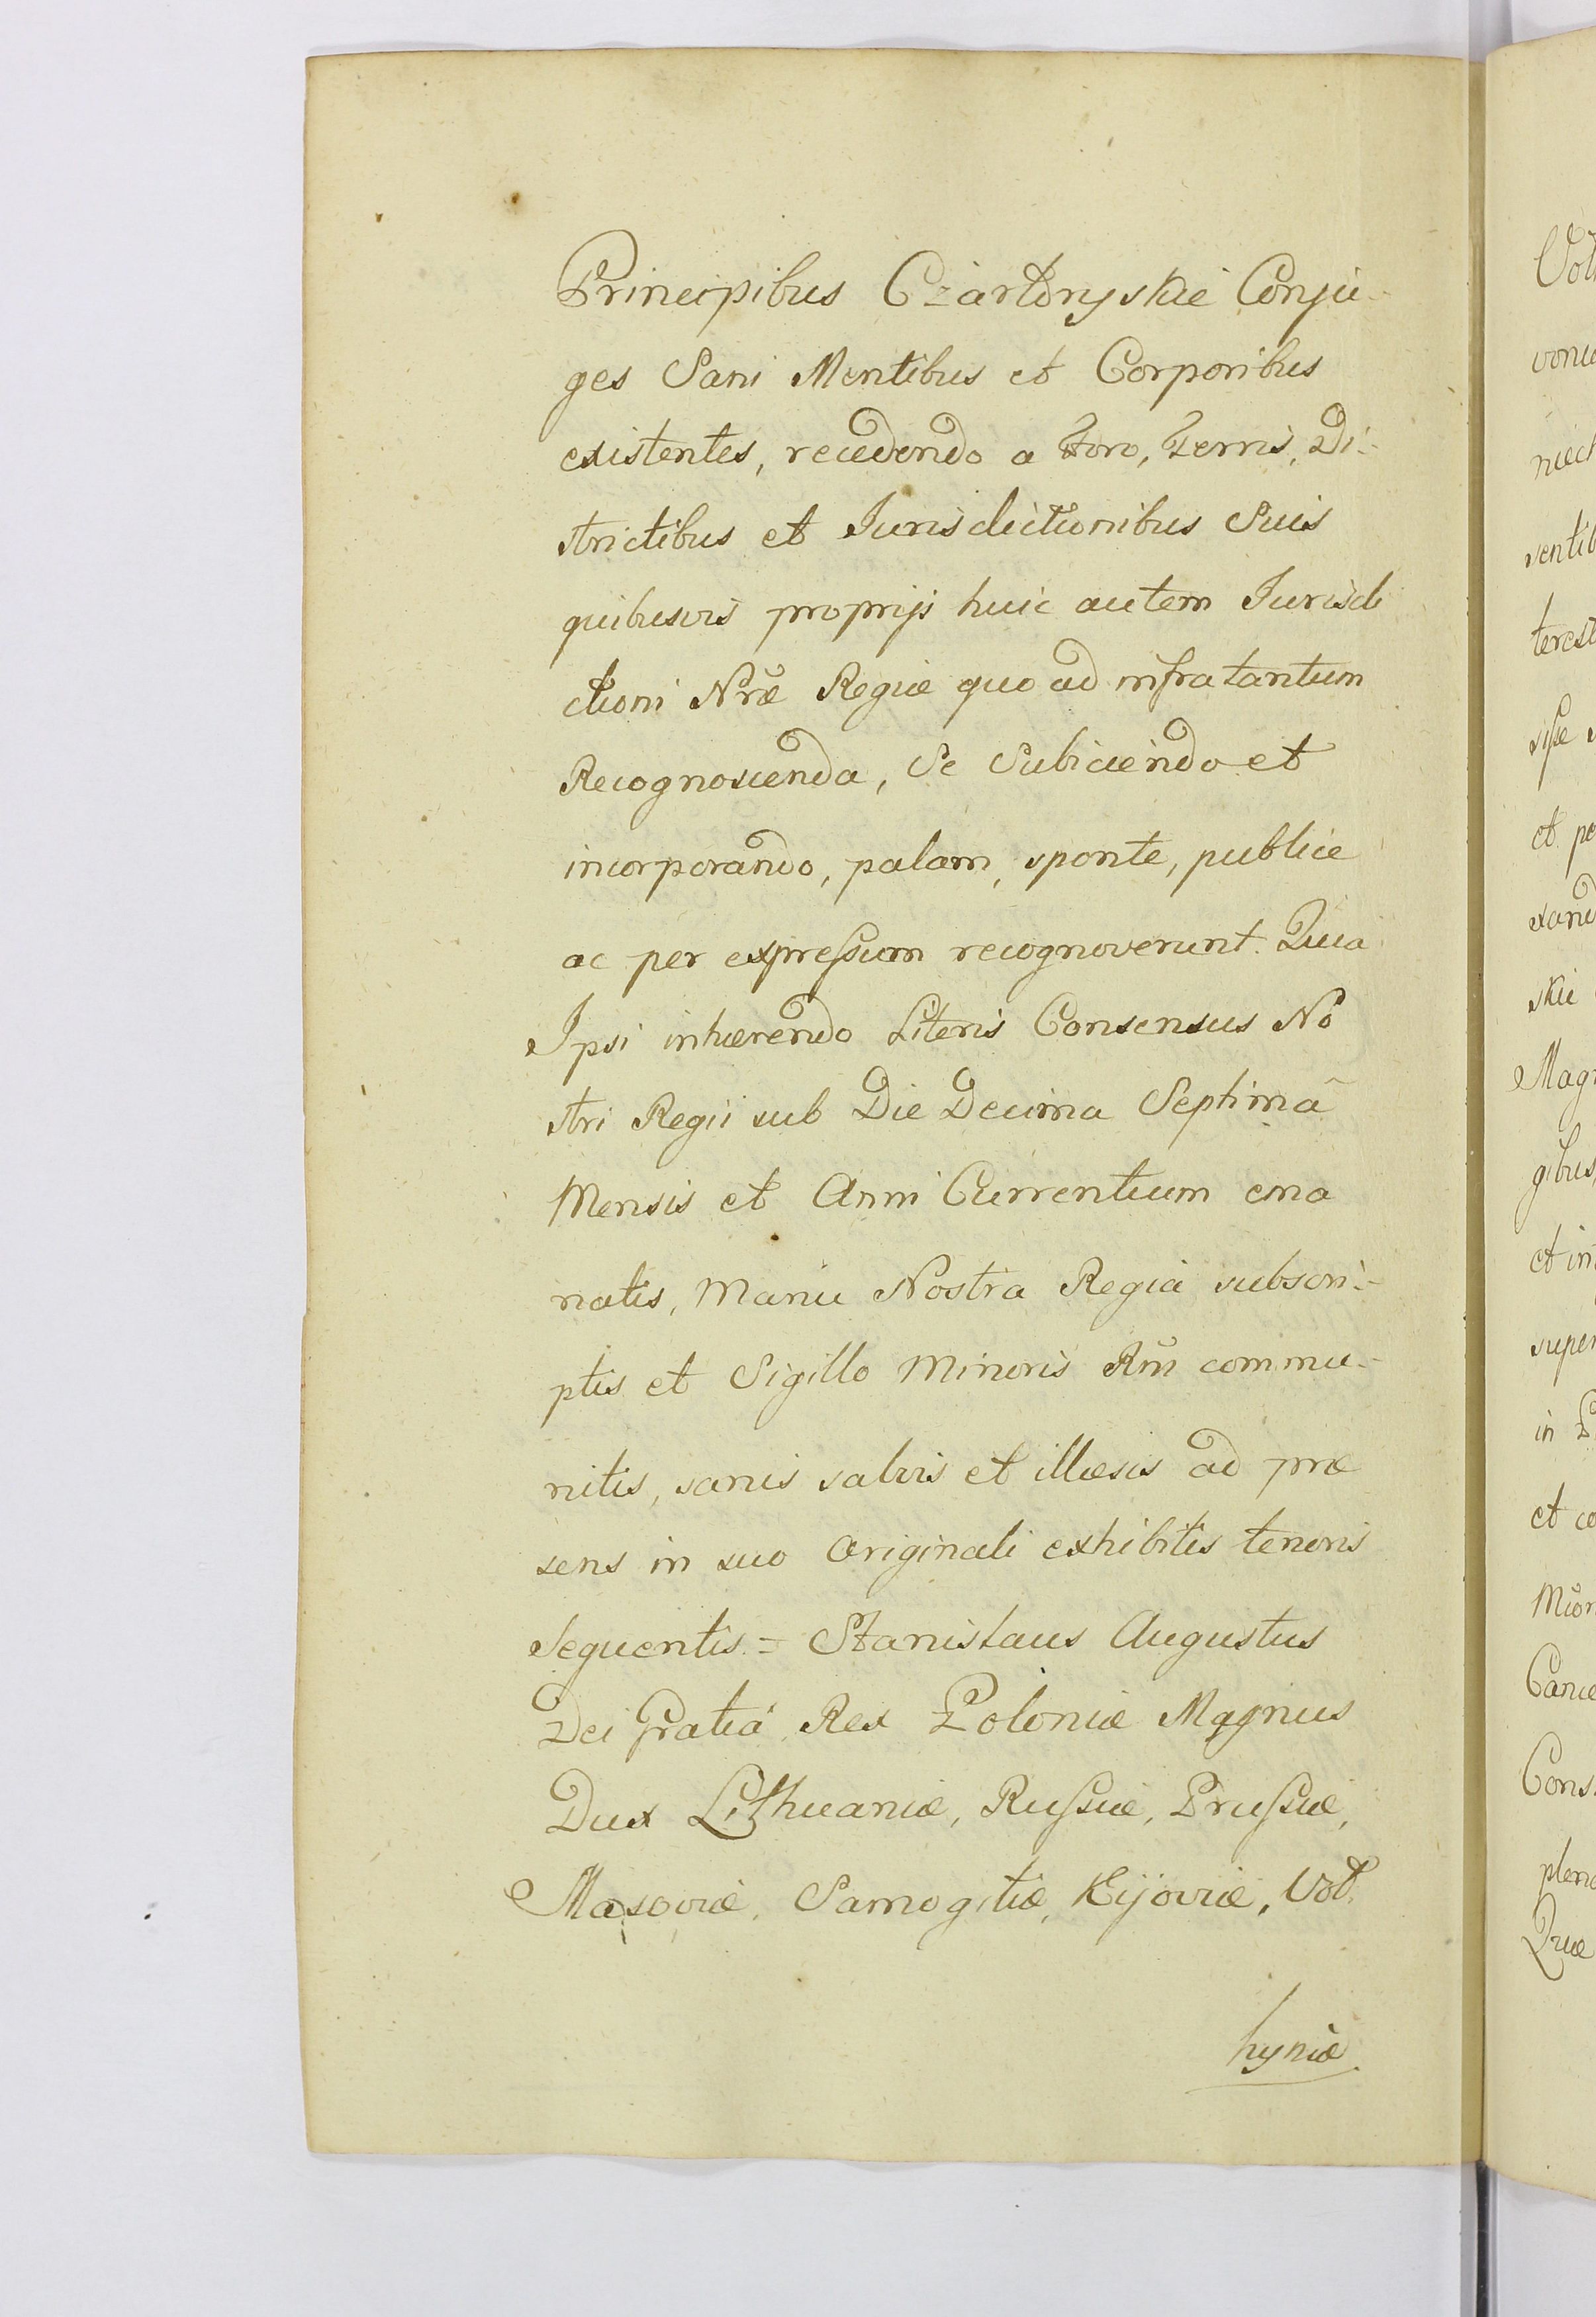 Principibus Czartoryskie Conju-
ges Sani Mentibus et Corporibus
existentes, recedendo a Foro, Terris, Di-
strictibus et Jurisdictionibus Suis
quibusvis proprijs huic autem Jurisdi
ctioni Nræ Regiæ quo ad infra tantum
Recognoscenda, Se Subiiciendo et
incorporando, palam, sponte, publice
ac per expreſsum recognoverunt. Quia
Ipsi inhærendo Literis Consensus No
stri Regii sub Die Decima Septimã
Mensis et Anni Currentium ema
natis, Manu Nostra Regia subscri-
ptis et Sigillo Minoris Rñi commu-
nitis, sanis salvis et illæsis ad præ
sens in suo Originali exhibitis tenoris
Sequentis = Stanislaus Augustus
Dei Gratiá Rex Poloniæ Magnus
Dux Lithuaniæ, Ruſsiæ, Pruſsiæ,
Masoviæ, Samogitiæ, Kijoviæ, Vol
hyniæ
Vol
ventib
et pe
Magn
gibus
et in
super
in P
et co
Cons
plena
Quæ